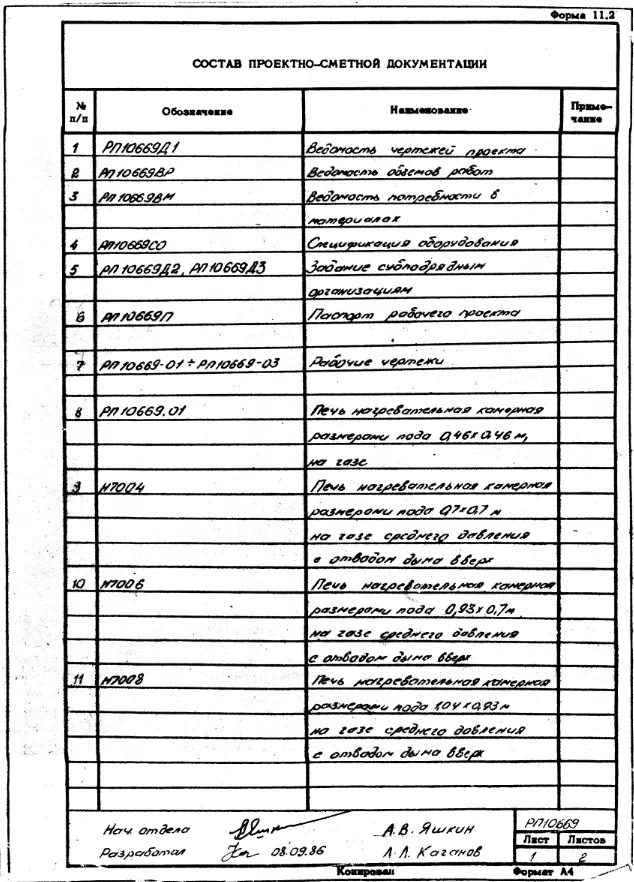 Форма 11.2
СОСТАВ ПРОЕКТНО-СМЕТНОЙ ДОКУМЕНТАЦИИ
№ п/п Обозначение Наименование Приме-
чание
1 РП10669Д1 Ведомость чертежей проекта
2 РП10669ВР Ведомость объемов работ
3 РП10669ВМ Ведомость потребности в
материалах
4 РП10669СО Спецификация оборудования
5 РП10669Д2, РП10669Д3 Задание субподрядным
организациям
6 РП10669П Паспорт рабочего проекта
7 РП10669-01÷РП10669-03 Рабочие чертежи
8 РП10669.01 Печь нагревательная камерная
размерами пода 0,46х0,46 м,
на газе
9 Н7004 Печь нагревательная камерная
размерами пода 0,7х0,7 м
на газе среднего давления
с отводом дыма вверх
10 Н7006 Печь нагревательная камерная
размерами пода 0,93х0,7м
на газе среднего давления
с отводом дыма вверх
11 Н7008 Печь нагревательная камерная
размерами пода 1,04х0,93м
на газе среднего давления
с отводом дыма вверх
Нач. отдела А.В. Яшкин
Разработал 08.09.86 А.Л. Каганов
РП10669
Лист Листов
1 2
Копировал Формат А4